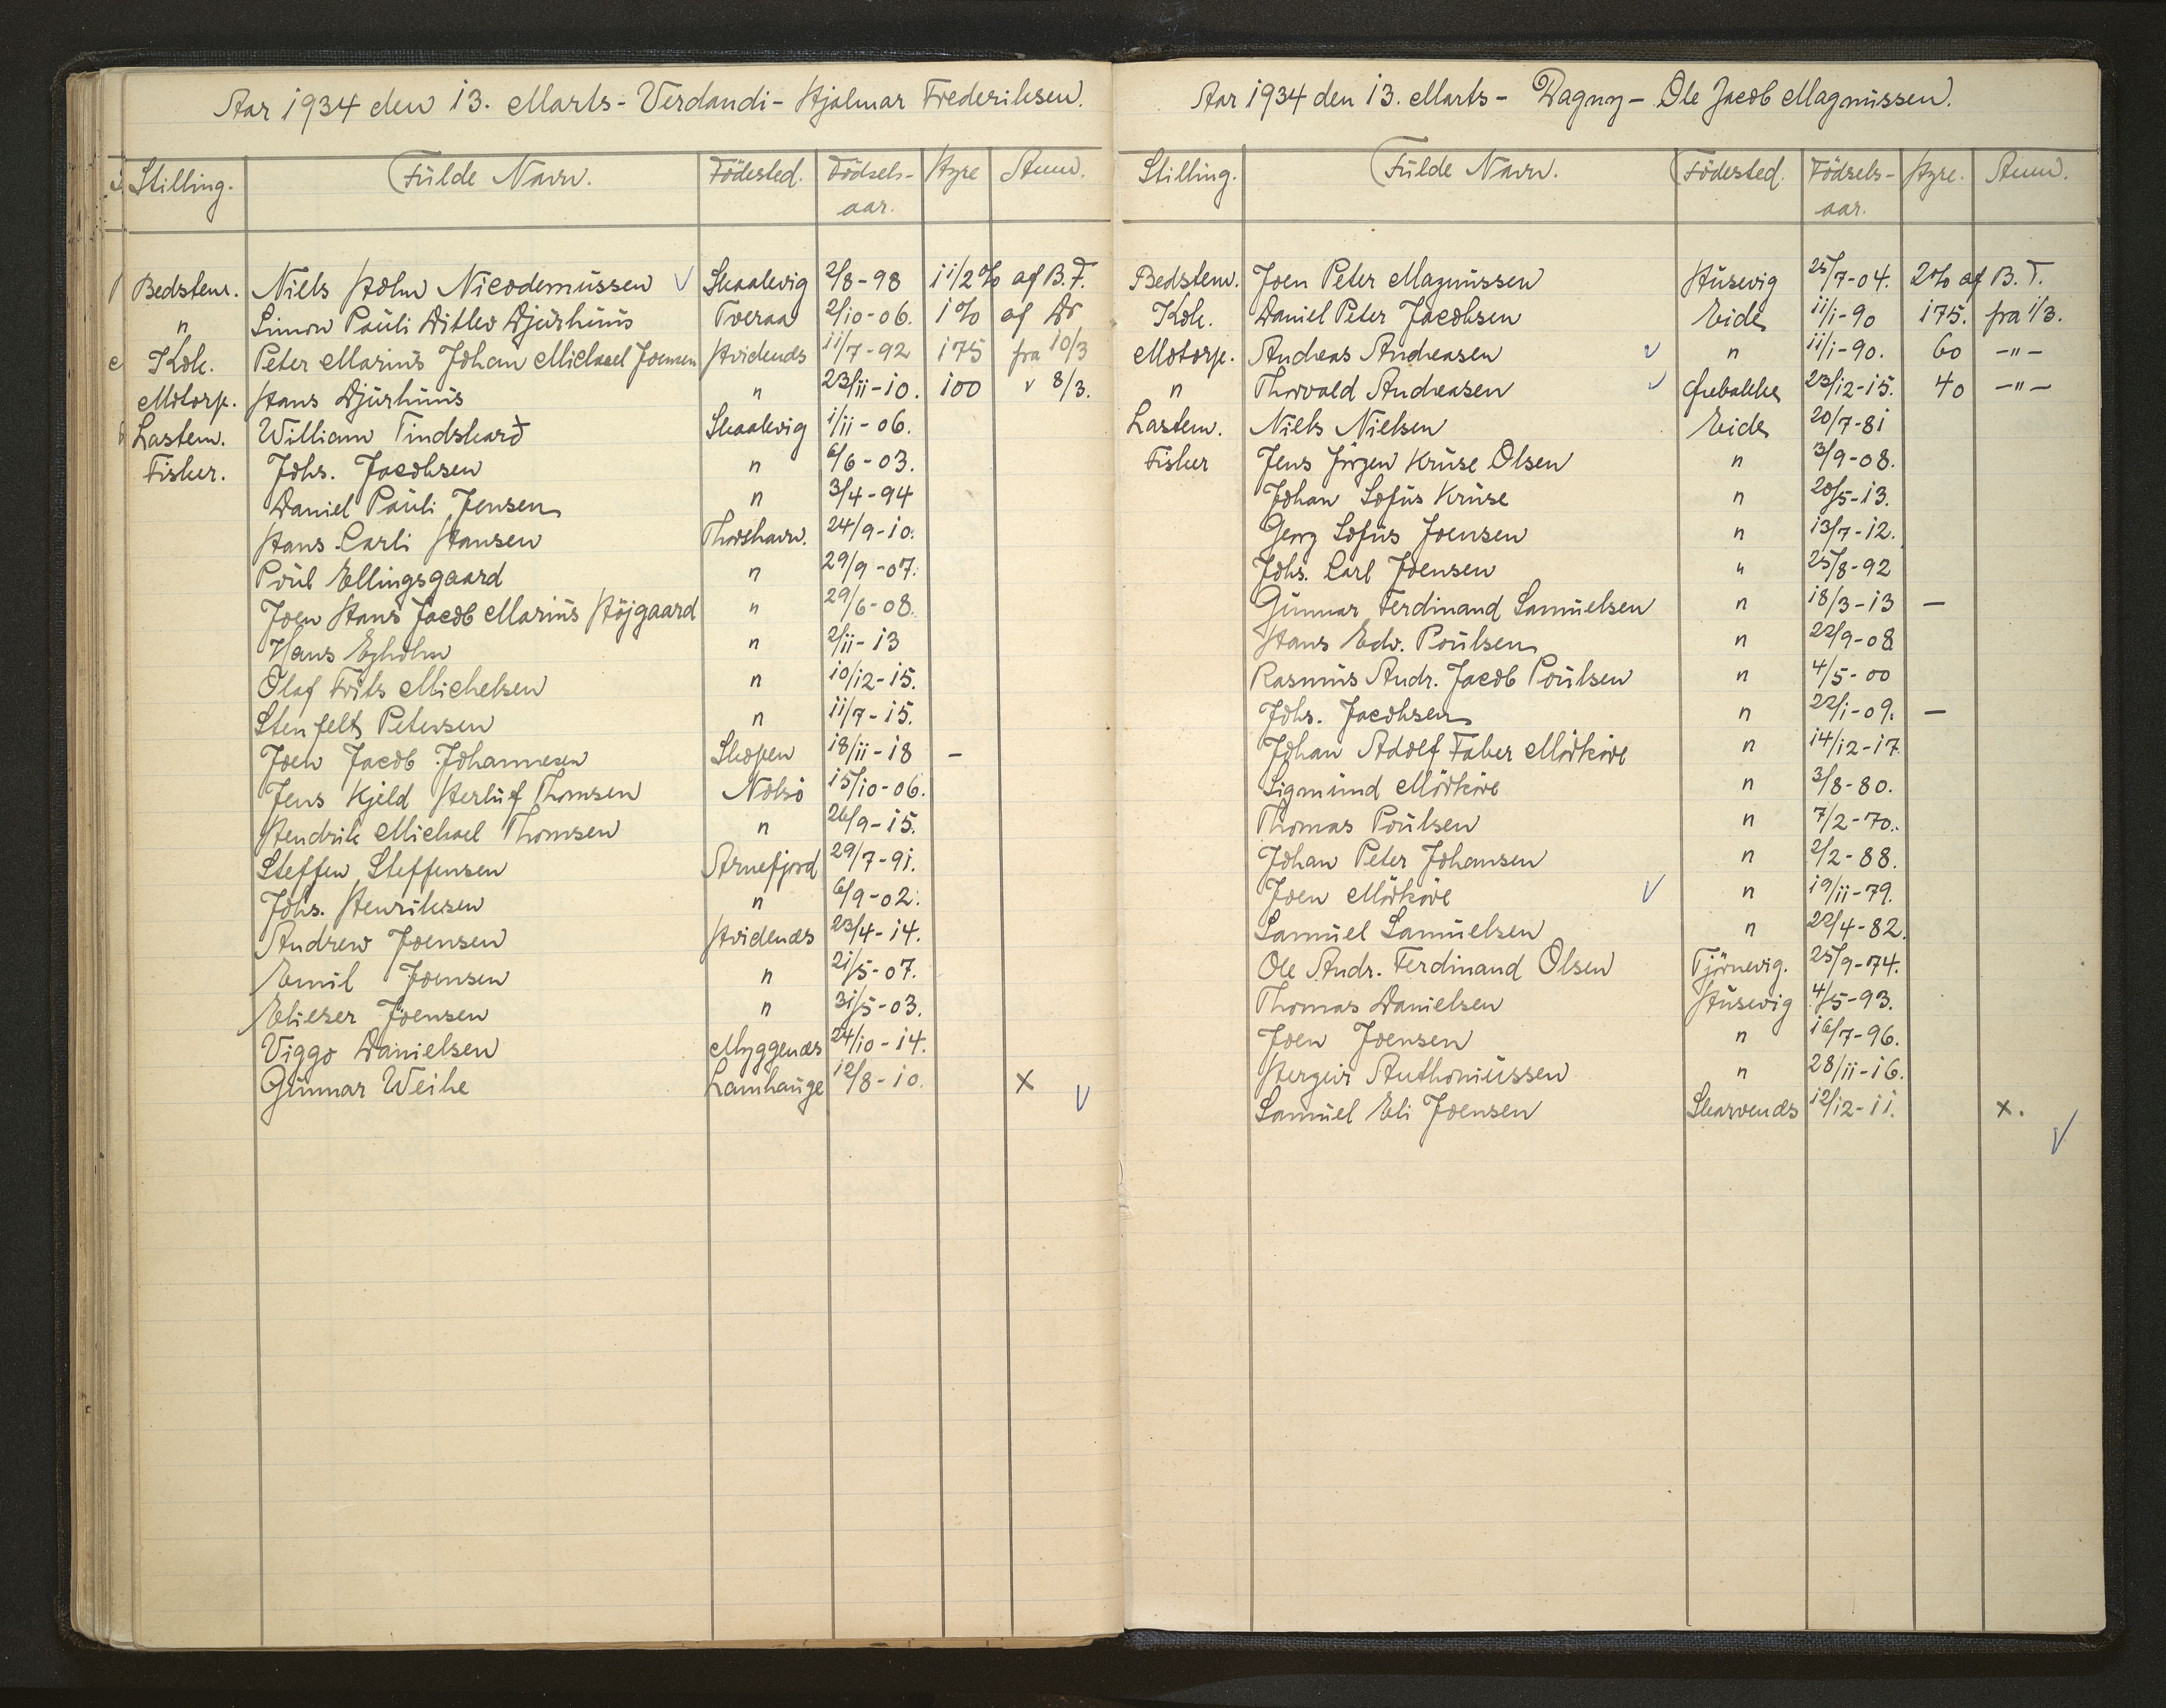 Aar 1934 den 13. Marts - Verdandi - Hjalmar Frederiksen.
Stilling. Fulde Navn. Födested. Födsels- Hyre Anm.
aar.
Bedstem. Niels Holm Nicodemussen V Skaalevig 2/8-98 1 1/2% af B.F.
" Simon Pauli Ditlev Djurhuus Tveraa 2/10-06. 1% af Do
Kok. Peter Marius Johan Michael Joensen Hvidenæs 11/7-92 175 fra 10/3
Motorp. Hans Djurhuus " 23/11-10. 100 " 8/3.
Lastem. William Tindskarð Skaalevig 1/11-06.
Fisker. Johs. Jacobsen " 6/6-03.
Daniel Pauli Jensen " 3/4-94
Hans Carli Hansen Thorshavn. 24/9-10.
Poul Ellingsgaard " 29/9-07.
Joen Hans Jacob Marius Höjgaard " 29/6-08.
Hans Egholm " 2/11-13
Olaf Frits Michelsen " 10/12-15.
Stenfelt Petersen " 11/7-15.
Joen Jacob Johannesen Skopen 18/11-18 -
Jens Kjeld Herluf Thomsen Nolsö 15/10-06.
Hendrik Michael Thomsen " 26/9-15.
Steffen Steffensen Arnefjord 29/7-91.
Johs. Henriksen " 6/9-02.
Andrew Joensen Hvidenæs 23/4-14.
Emil Joensen " 21/5-07.
Elieser Joensen " 31/5-03.
Viggo Danielsen Myggenæs 24/10-14.
Gunnar Weihe Lamhauge 12/8-10. X V
Aar 1934 den 13. Marts - Dagny - Ole Jacob Magnussen.
Stilling. Fulde Navn. Födested. Födsels- Hyre. Anm.
aar.
Bedstem. Joen Peter Magnussen Husevig 25/7-04. 2% af B.F.
Kok. Daniel Peter Jacobsen Eide 11/1-90 175. fra 1/3.
Motorp. Andreas Andreasen V " 11/1-90. 60 -"-
" Thorvald Andreasen V 23/12-15. 40 -"-
Lastem. Niels Nielsen Eide 20/7-81
Fisker Jens Jörgen Kruse Olsen " 3/9-08.
Johan Sofus Kruse " 20/5-13.
Georg Sofus Joensen " 13/7-12.
Johs. Carl Joensen " 25/8-92
Gunnar Ferdinand Samuelsen " 18/3-13 -
Hans Edv. Poulsen " 22/9-08
Rasmus Andr. Jacob Poulsen " 4/5-00
Johs. Jacobsen " 22/1-09. -
Johan Adolf Faber Mörköre " 14/12-17.
Sigmund Mörköre " 3/8-80.
Thomas Poulsen " 7/2-70.
Johan Peter Johansen " 2/2-88.
Joen Mörköre V " 19/11-79.
Samuel Samuelsen " 22/4-82.
Ole Andr. Ferdinand Olsen Tjörnevig. 25/9-74.
Thomas Danielsen Husevig 4/5-93.
Joen Joensen " 16/7-96.
Hergeir Anthoniussen " 28/11-16.
Samuel Eli Joensen Skarvenæs 12/12-11. x. V